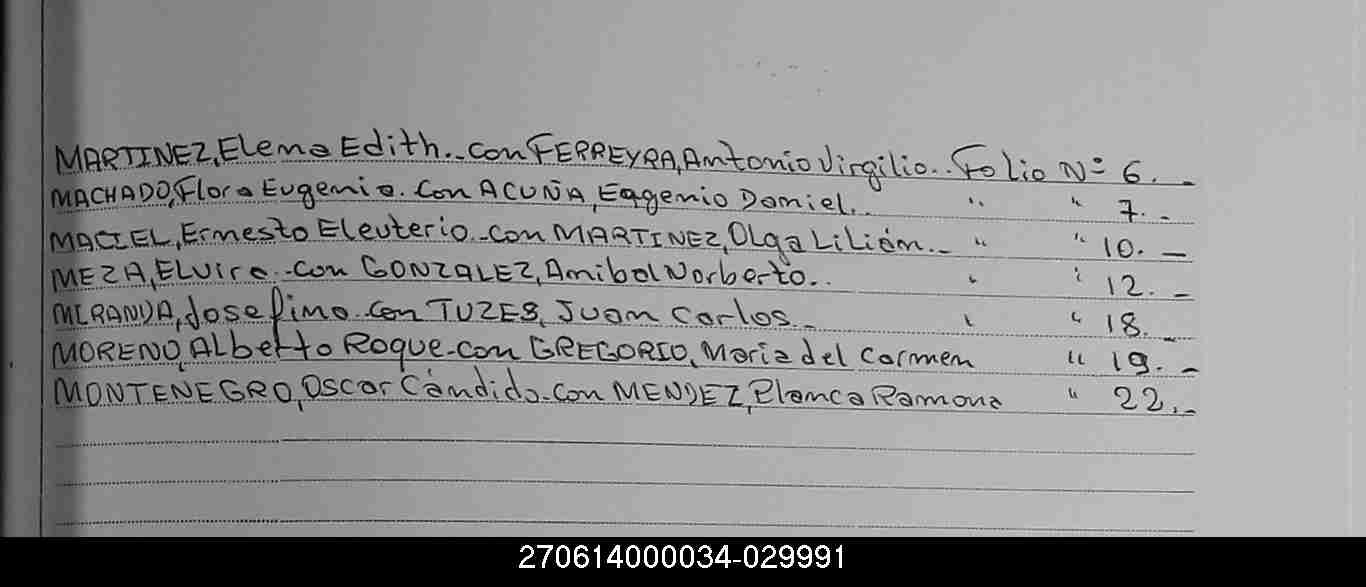 MARTINEZ, Elena Edith.- con FERREYRA, Antonio Virgilio.. Folio Nº 6.-
MACHADO, Flora Eugenia. con ACUÑA, Eugenio Daniel.. " " 7.-
MACIEL, Ernesto Eleuterio.- con MARTINEZ, Olga Lilián.- " " 10.-
MEZA, Elvira.- con GONZALEZ, Anibal Norberto.. " " 12.-
MIRANDA, Josefina. con TUZES, Juan Carlos.- " " 18.-
MORENO, Alberto Roque-con GREGORIO, Maria del Carmen " 19.-
MONTENEGRO, Oscar Cándido.-con MENDEZ, Blanca Ramona " 22.-
270614000034-029991